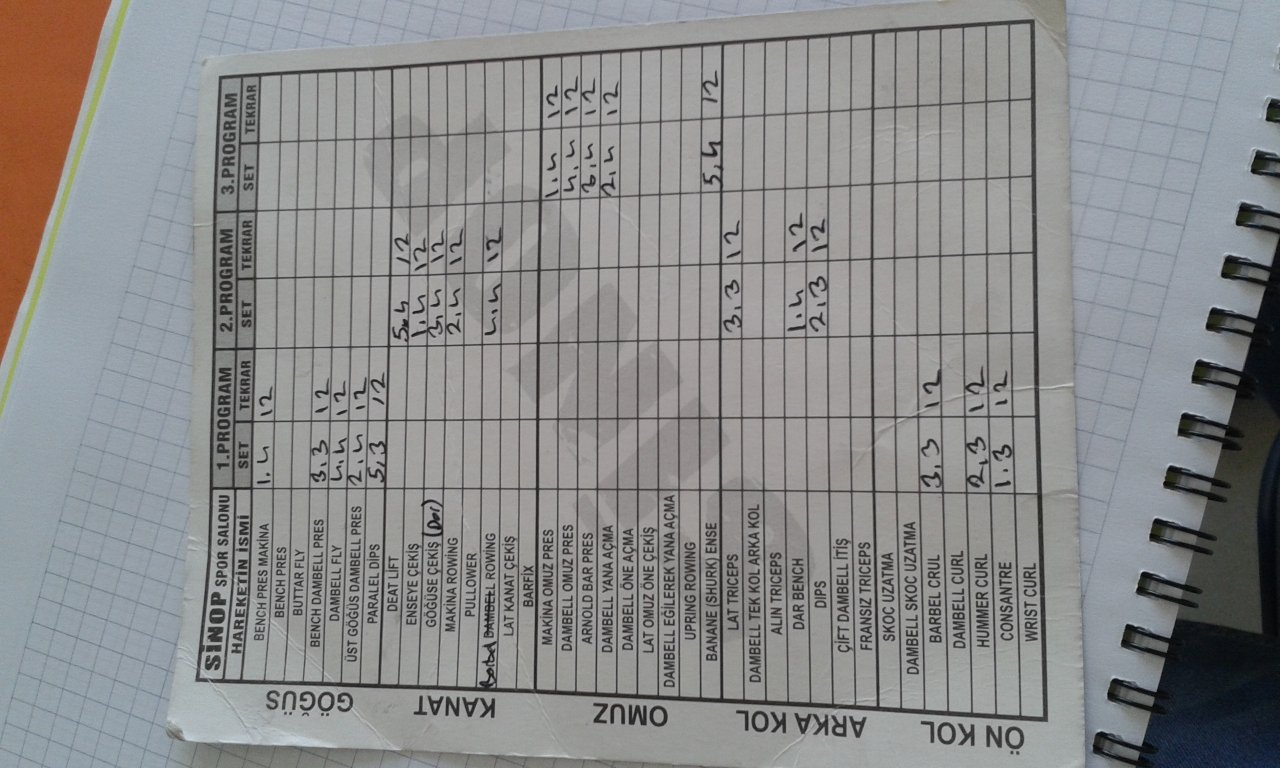 SİNOP SPOR SALONU 1.PROGRAM 2.PROGRAM 3.PROGRAM
HAREKETİN İSMİ SET TEKRAR SET TEKRAR SET TEKRAR
GÖĞÜS
BENCH PRES MAKİNA 1.4 12
BENCH PRES
BUTTAR FLY
BENCH DAMBELL PRES 3.3 12
DAMBELL FLY 4.4 12
ÜST GÖĞÜS DAMBELL PRES 2.4 12
PARALEL DİPS 5.3 12
KANAT
DEAT LIFT 5.4 12
ENSEYE ÇEKİŞ 1.4 12
GÖĞÜSE ÇEKİŞ (Dar) 3.4 12
MAKİNA ROWİNG 2.4 12
PULLOWER
Barbel DAMBELL ROWİNG 4.4 12
LAT KANAT ÇEKİŞ
BARFİX
OMUZ
MAKİNA OMUZ PRES 1.4 12
DAMBELL OMUZ PRES 4.4 12
ARNOLD BAR PRES 3.4 12
DAMBELL YANA AÇMA 2.4 12
DAMBELL ÖNE AÇMA
LAT OMUZ ÖNE ÇEKİŞ
DAMBELL EGİLEREK YANA AÇMA
UPRING ROWING
BANANE (SHURK) ENSE 5.4 12
ARKA KOL
LAT TRICEPS 3.3 12
DAMBELL TEK KOL ARKA KOL
ALIN TRICEPS
DAR BENCH 1.4 12
DIPS 2.3 12
ÇİFT DAMBELL İTİŞ
FRANSIZ TRICEPS
ÖN KOL
SKOC UZATMA
DAMBELL SKOC UZATMA
BARBEL CRUL 3.3 12
DAMBELL CURL
HUMMER CURL 2.3 12
CONSANTRE 1.3 12
WRIST CURL